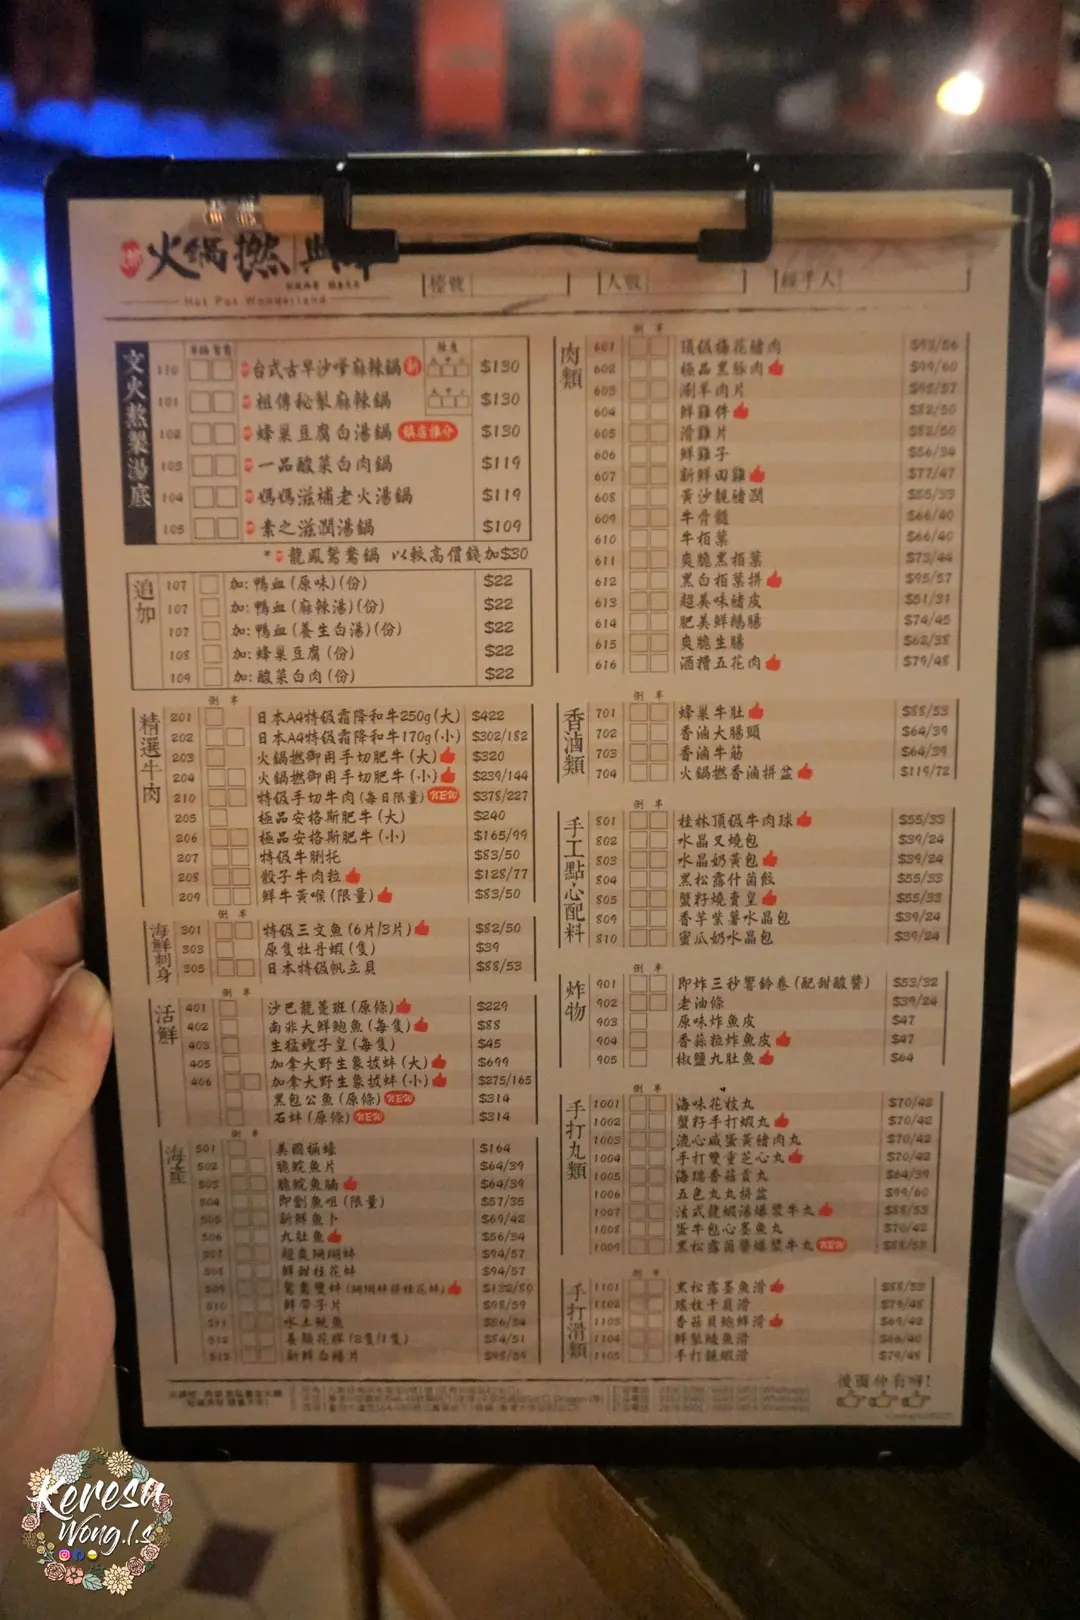 火鍋撚
Hot Pot Wonderland
檯號
人數
經手人
文火熬製湯底
單鍋 鴛鴦
辣度
110 台式古早沙嗲麻辣鍋 新 $130
101 祖傳秘製麻辣鍋 $130
102 蜂巢豆腐白湯鍋 鎮店推介 $130
103 一品酸菜白肉鍋 $119
104 媽媽滋補老火湯鍋 $119
105 素之滋潤湯鍋 $109
* 龍鳳鴛鴦鍋 以較高價錢加$30
追加
107 加: 鴨血 (原味) (份) $22
107 加: 鴨血 (麻辣湯) (份) $22
107 加: 鴨血 (養生白湯) (份) $22
108 加: 蜂巢豆腐 (份) $22
109 加: 酸菜白肉 (份) $22
精選牛肉
例 半
201 日本A4特級霜降和牛250g (大) $422
202 日本A4特級霜降和牛170g (小) $302/182
203 火鍋撚御用手切肥牛 (大) $320
204 火鍋撚御用手切肥牛 (小) $239/144
210 特級手切牛肉 (每日限量) NEW $378/227
205 極品安格斯肥牛 (大) $240
206 極品安格斯肥牛 (小) $165/99
207 特級牛脷托 $83/50
208 骰子牛肉粒 $128/77
209 鮮牛黃喉 (限量) $83/50
海鮮刺身
例 半
301 特級三文魚 (6片/3片) $82/50
303 原隻牡丹蝦 (隻) $39
305 日本特級帆立貝 $88/53
活鮮
例 半
401 沙巴龍躉班 (原條) $229
402 南非大鮮鮑魚 (每隻) $88
403 生猛蟶子皇 (每隻) $45
405 加拿大野生象拔蚌 (大) $699
406 加拿大野生象拔蚌 (小) $275/165
黑包公魚 (原條) NEW $314
石蚌 (原條) NEW $314
海產
例 半
501 美國桶蠔 $164
502 脆鯇魚片 $64/39
503 脆鯇魚腩 $64/39
504 即劏魚咀 (限量) $57/35
505 新鮮魚卜 $69/42
506 九肚魚 $56/34
507 超爽珊瑚蚌 $94/57
508 鮮甜桂花蚌 $94/57
509 鴛鴦雙蚌 (珊瑚蚌拼桂花蚌) $132/80
510 鮮帶子片 $98/59
511 水土魷魚 $56/34
512 花膠 (2隻/1隻) $84/51
513 新鮮白鱔片 $98/59
肉類
例 半
601 頂級梅花豬肉 $93/56
602 極品黑豚肉 $99/60
603 涮羊肉片 $95/57
604 鮮雞件 $82/50
605 滑雞片 $82/50
606 鮮雞子 $56/34
607 新鮮田雞 $77/47
608 黃沙靚豬潤 $55/33
609 牛骨髓 $66/40
610 牛栢葉 $66/40
611 爽脆黑栢葉 $73/44
612 黑白栢葉拼 $95/57
613 超美味豬皮 $51/31
614 肥美鮮鵝腸 $74/45
615 爽脆生腸 $62/38
616 酒糟五花肉 $79/48
香滷類
例 半
701 蜂巢牛肚 $88/53
702 香滷大腸頭 $64/39
703 香滷牛筋 $64/39
704 火鍋撚香滷拼盆 $119/72
手工點心配料
例 半
801 桂林頂級牛肉球 $55/33
802 水晶叉燒包 $39/24
803 水晶奶黃包 $39/24
804 黑松露什菌餃 $55/33
805 蟹籽燒賣皇 $55/33
809 香芋紫薯水晶包 $39/24
810 蜜瓜奶水晶包 $39/24
炸物
例 半
901 即炸三秒響鈴卷 (配甜酸醬) $53/32
902 老油條 $39/24
903 原味炸魚皮 $47
904 香蒜粒炸魚皮 $47
905 椒鹽九肚魚 $64
手打丸類
例 半
1001 海味花枝丸 $70/42
1002 蟹籽手打蝦丸 $70/42
1003 流心咸蛋黃豬肉丸 $70/42
1004 手打雙重芝心丸 $70/42
1005 海瑞香菇貢丸 $64/39
1006 五色丸丸拼盆 $99/60
1007 法式龍蝦湯爆漿牛丸 $88/53
1008 蛋牛包心墨魚丸 $70/42
1009 黑松露菌醬爆漿牛丸 NEW $88/53
手打滑類
例 半
1101 黑松露墨魚滑 $88/53
1102 瑤柱干貝滑 $79/48
1103 香菇貝鮑鮮滑 $69/42
1104 鮮製鯪魚滑 $66/40
1105 手打靚蝦滑 $79/48
後面仲有㗎!
Keresa
Wong.l.s